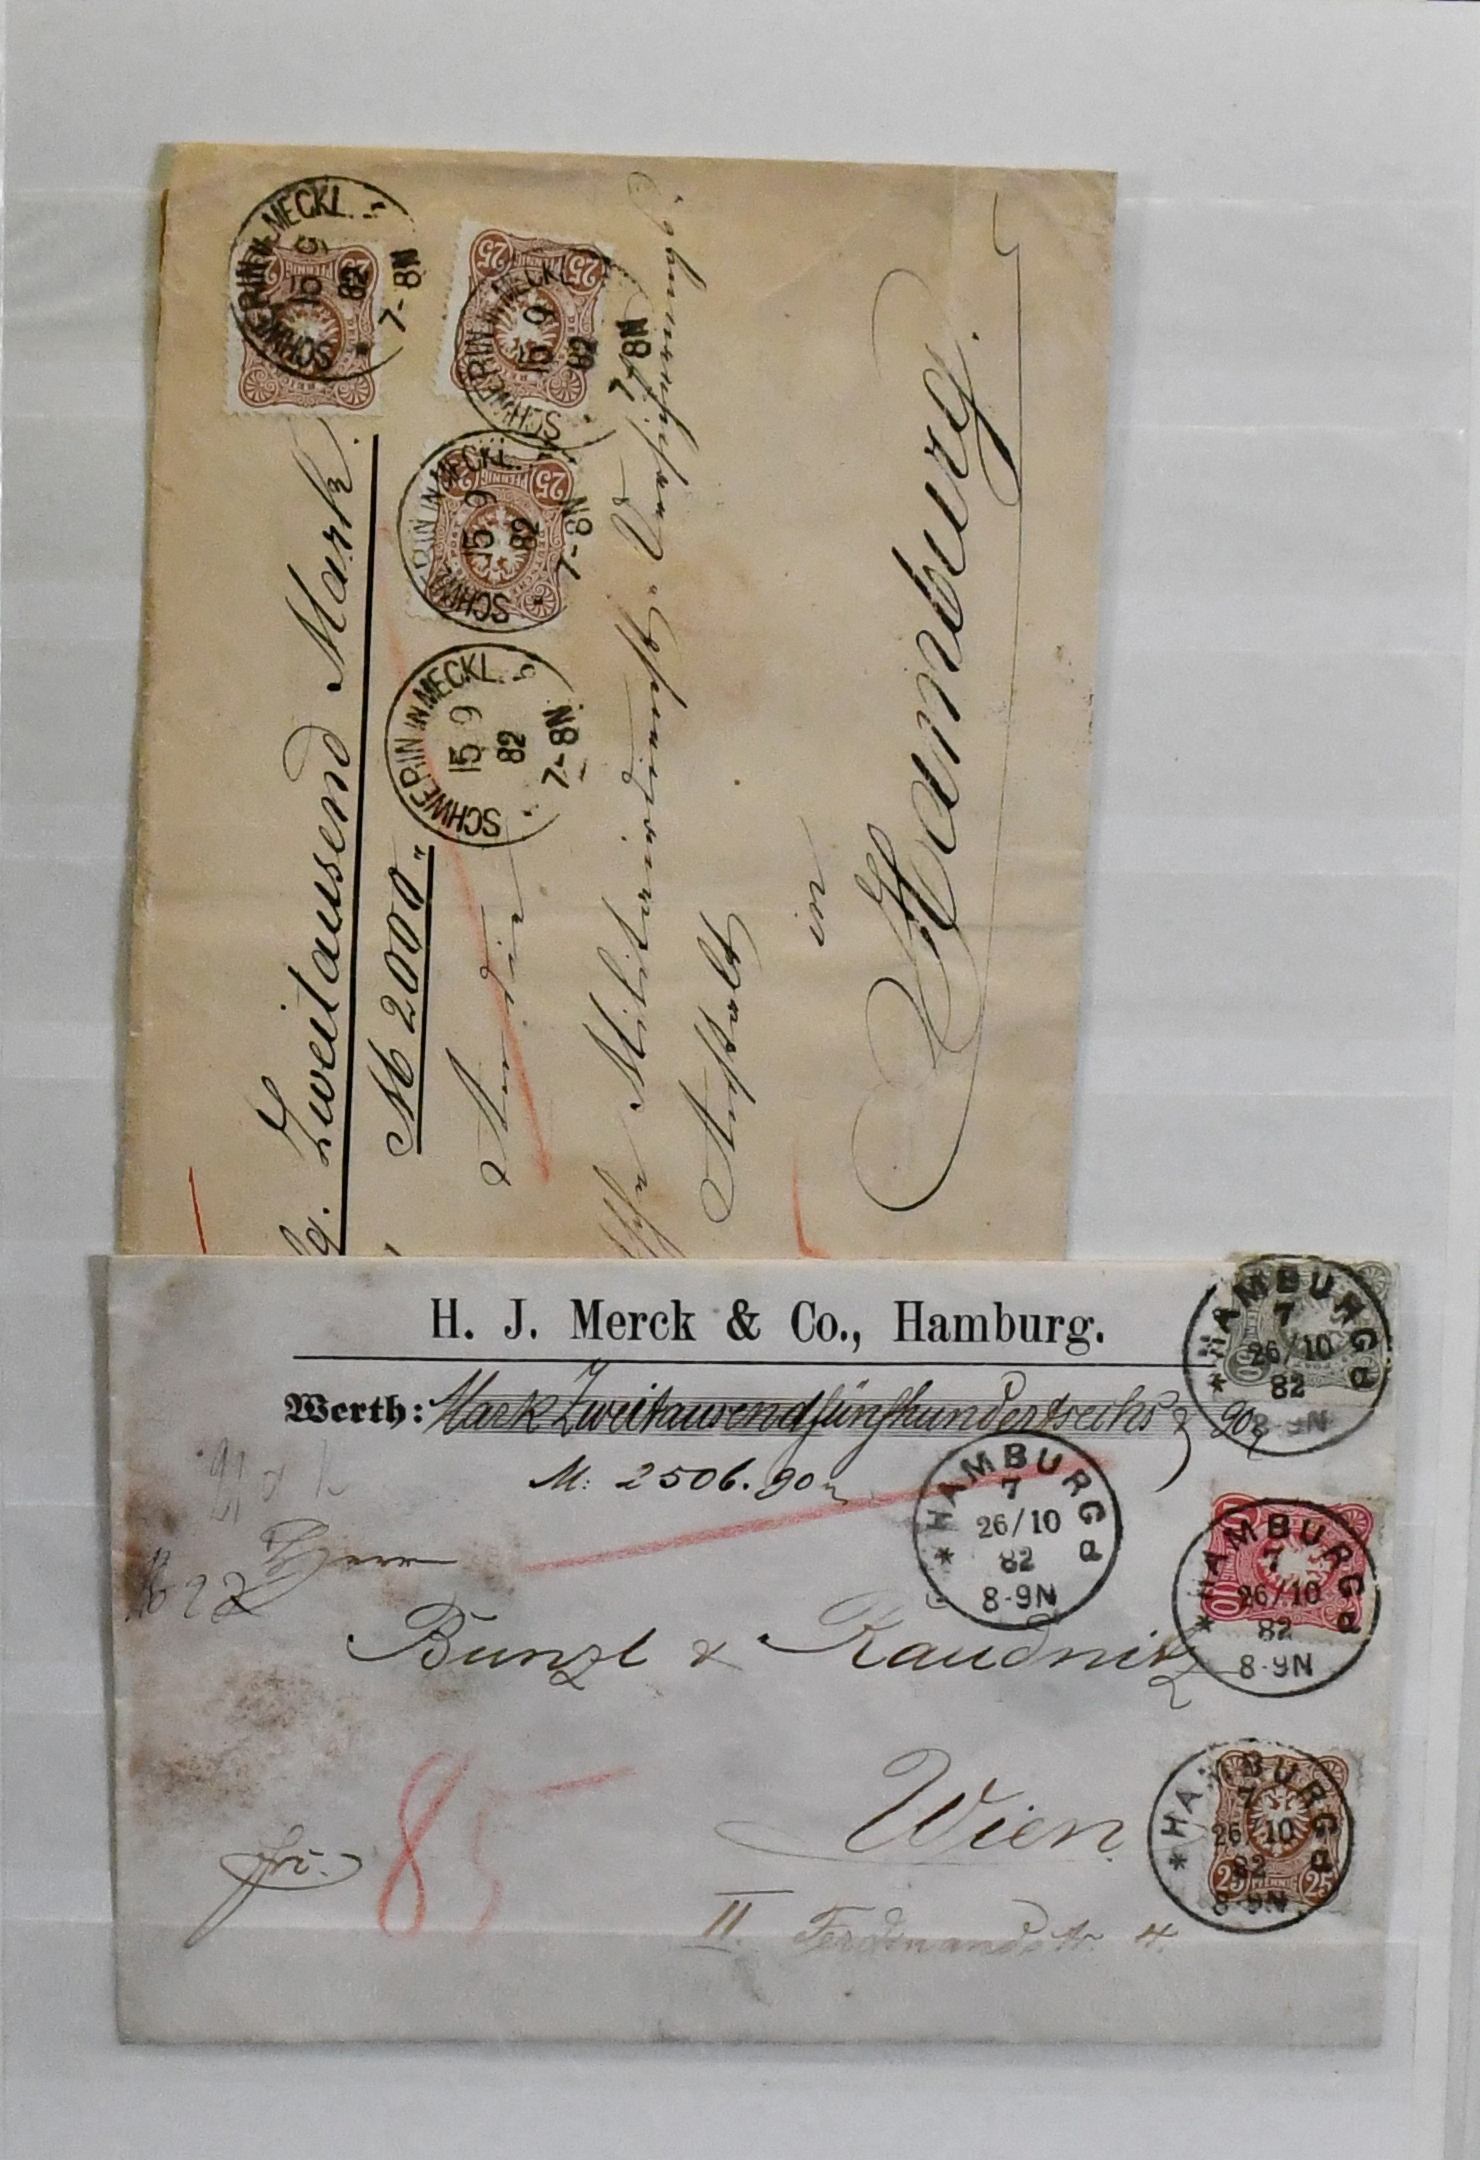 Zweitausend Mark.
M 2000.„
An die
Militairdienst-Versicherungs
Anstalt
in
Hamburg.
25 PFENNIG 25
SCHWERIN IN MECKL.
15 9
82
7-8N
25 PFENNIG 25
SCHWERIN IN MECKL.
15 9
82
7-8N
25 PFENNIG 25
SCHWERIN IN MECKL.
15 9
82
7-8N
SCHWERIN IN MECKL.
15 9
82
7-8N
H. J. Merck & Co., Hamburg.
Werth: Mark Zweitausendfünfhundertsechs, 90
M: 2506.90
Herrn
Bunzl & Raudnitz
Wien
II. Ferdinandstr. 4.
fr.
85
* HAMBURG d
7
26/10
82
8-9N
50
* HAMBURG d
7
26/10
82
8-9N
10
* HAMBURG d
7
26/10
82
8-9N
* HAMBURG d
7
26/10
82
8-9N
25 PFENNIG 25